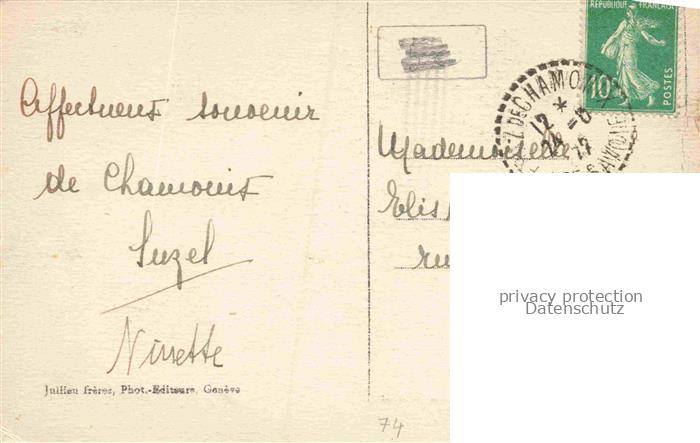 Affectueux souvenir
de Chamonix
Suzel
Ninette
Jullien frères, Phot.-Editeurs, Genève
74
RÉPUBLIQUE FRANÇAISE
10c
POSTES
DE CHAMONIX
12
Mademoiselle
privacy protection
Datenschutz